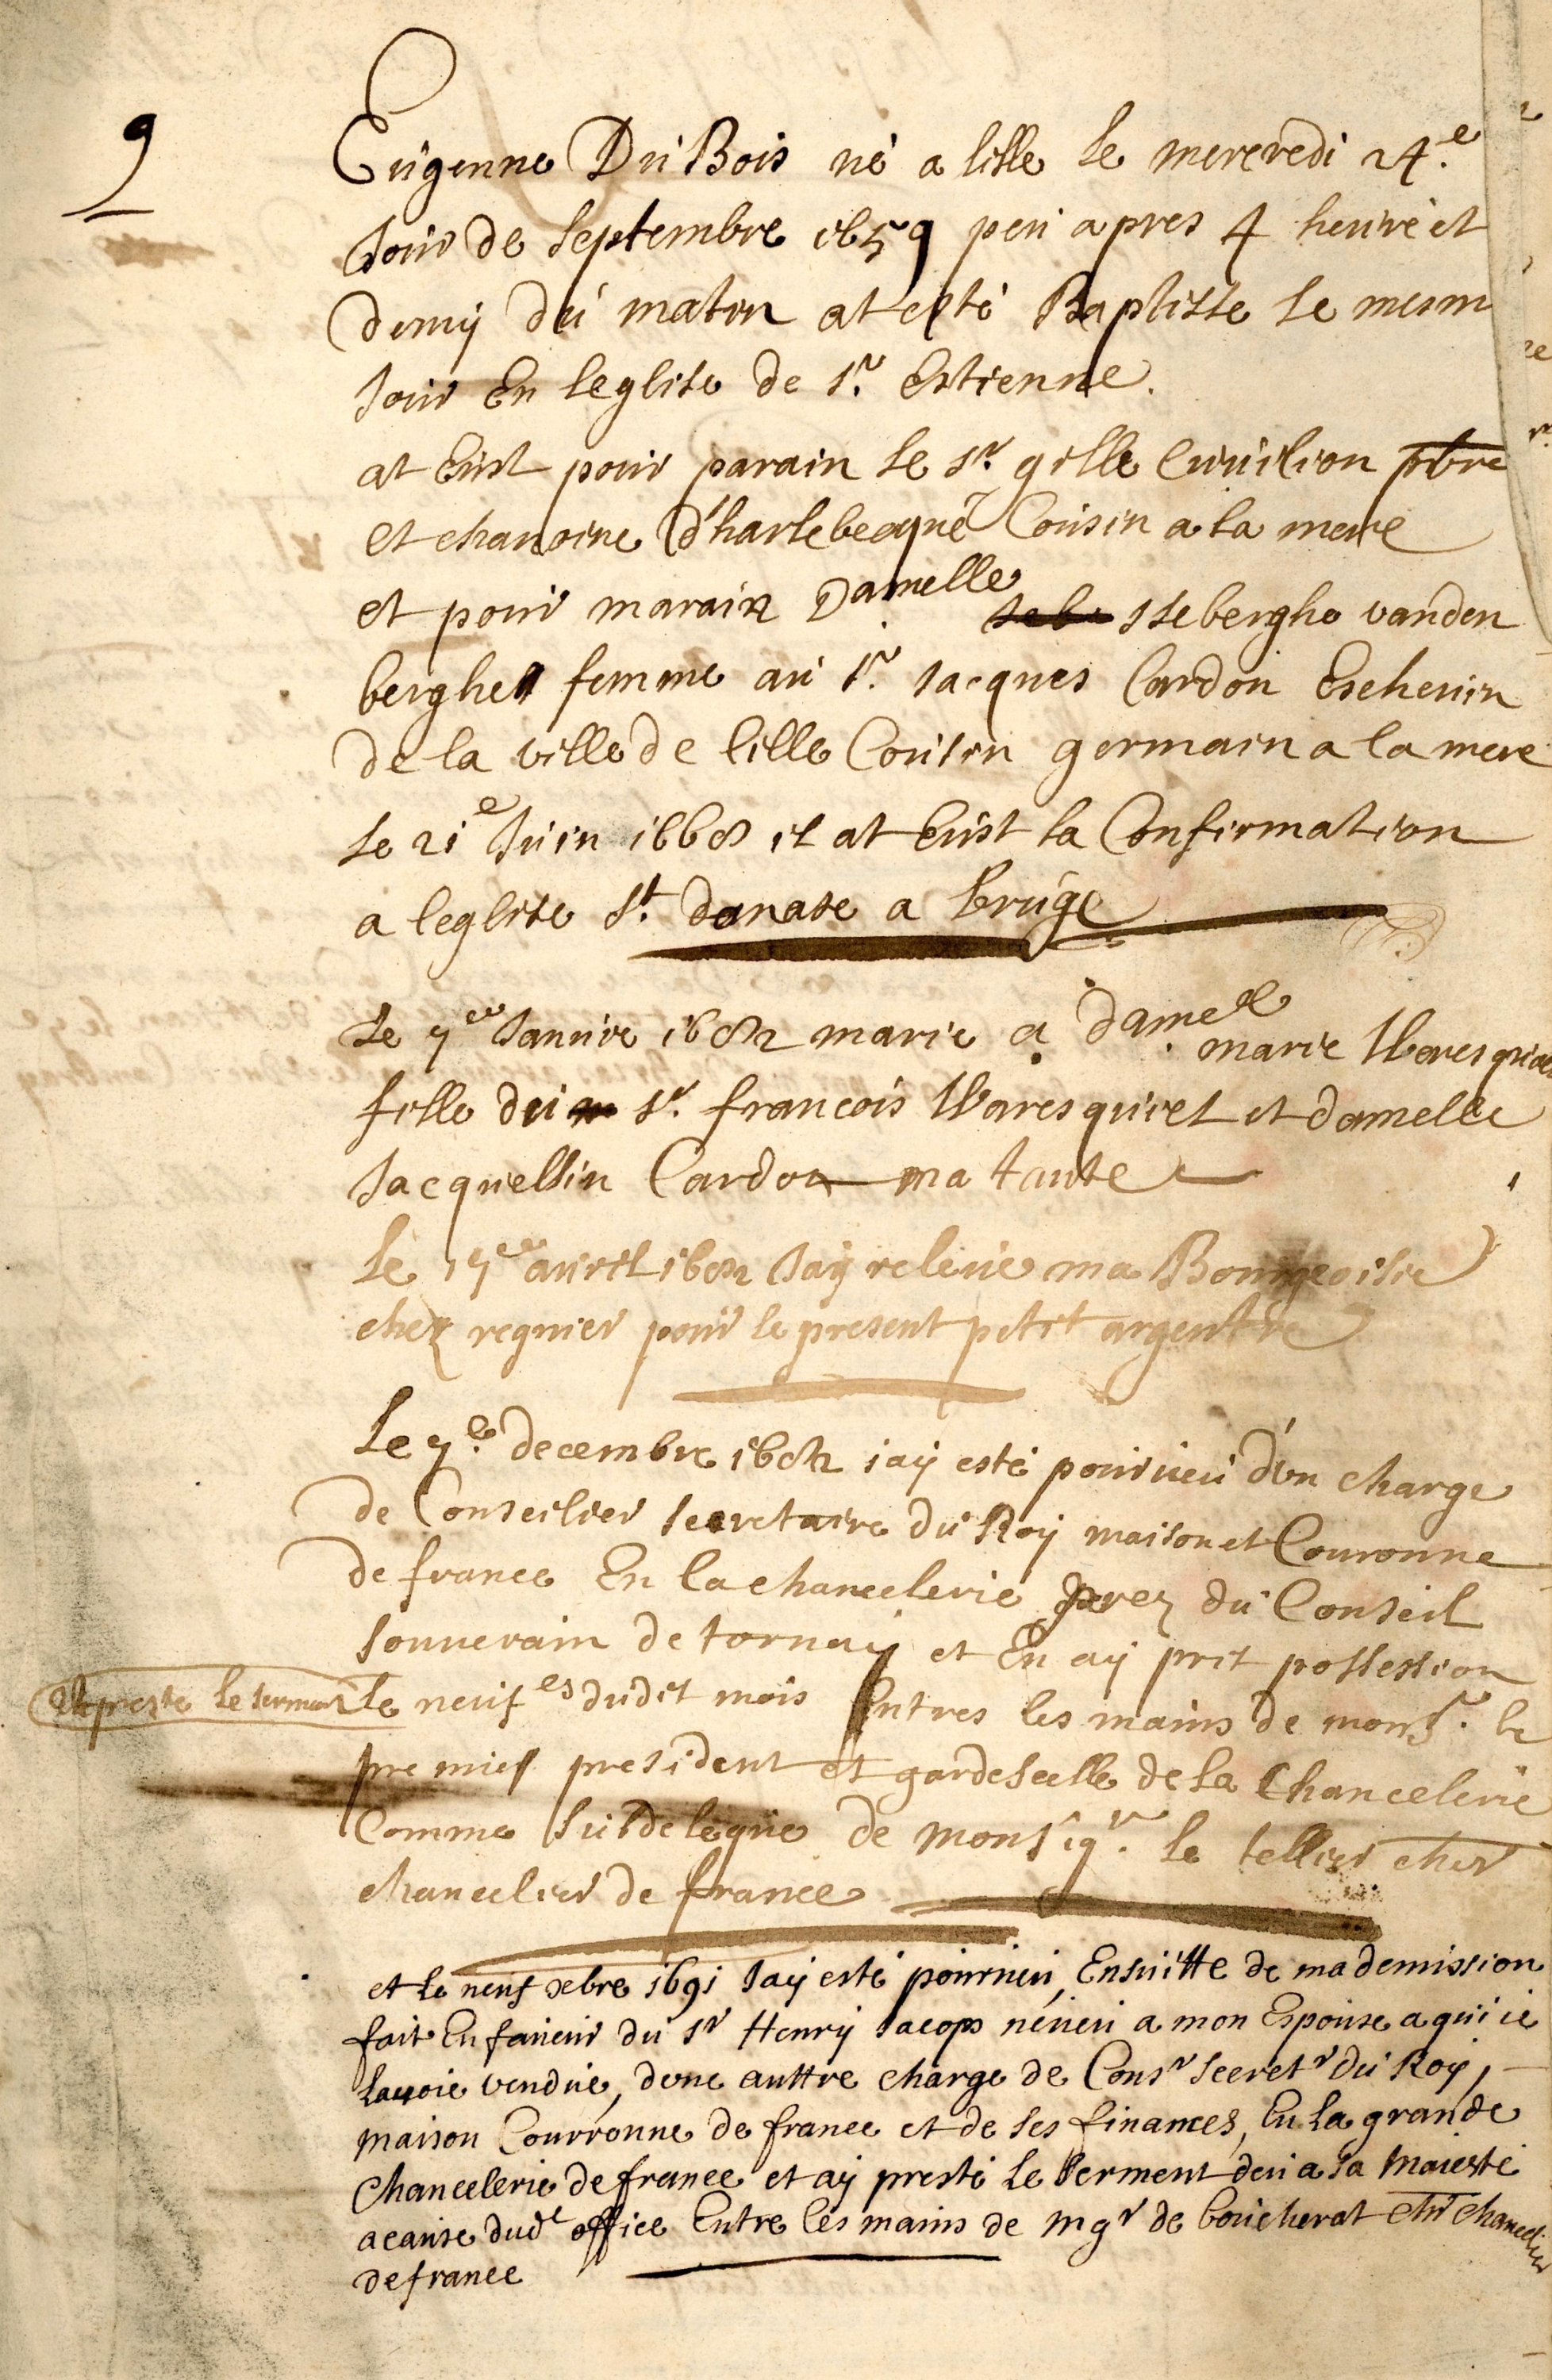 9
Eugenne Du Bois né a lille le mercredi 24.e
Jour de septembre 1659 peu apres 4 heure et
demij du matin at esté Baptisse le mesm
Jour En leglise de sr. Estienne.
at Eust pour parain le sr. gille pbre
et chanoine d'harlebecque Cousin a la mere
et pour marain Damelle Isebergho vanden
berghe femme au sr. Jacques Cardon Eschevin
de la ville de lille Cousin germain a la mere
le 21e Juin 1668 il at Eust la Confirmation
a leglise st. donase a bruge
le 7e Januire 1682 marie a damelle marie
fille du sr. francois Waresquiel et damelle
Jacquellin Cardon ma tante
Le 17e auril 1682 Jaij releue ma Bourgeoisie
chez regnier pour le present petit argentre
Le 7.e decembre 1682 iaij esté pourueu d'un charge
de Conseilier secretaire du Roij maison et Couronne
de france En la chancelerie prez du Conseil
souuerain de tornaij et En aij prit possession
et preste le serment le neuf es dudit mois Entres les mains de monsr. le
premier president et gardescelle de la Chancelerie
Comme subdelegue de monsigr. le tellier cher
chancelier de france
et le neuf xbre 1691 Jaij esté pourueu, Ensuitte de ma demission
fait En faueur du sr Henrij Jacops néueu a mon Espouse a qui ie
lauoie vendue, dune auttre charge de Consr secretr du Roij,
maison Courronne de france et de ses finances, En la grande
Chancelerie de france et aij presté le serment deu a sa maiesté
acause dudt office Entre les mains de mgr de boucherat chr chancelier
de france